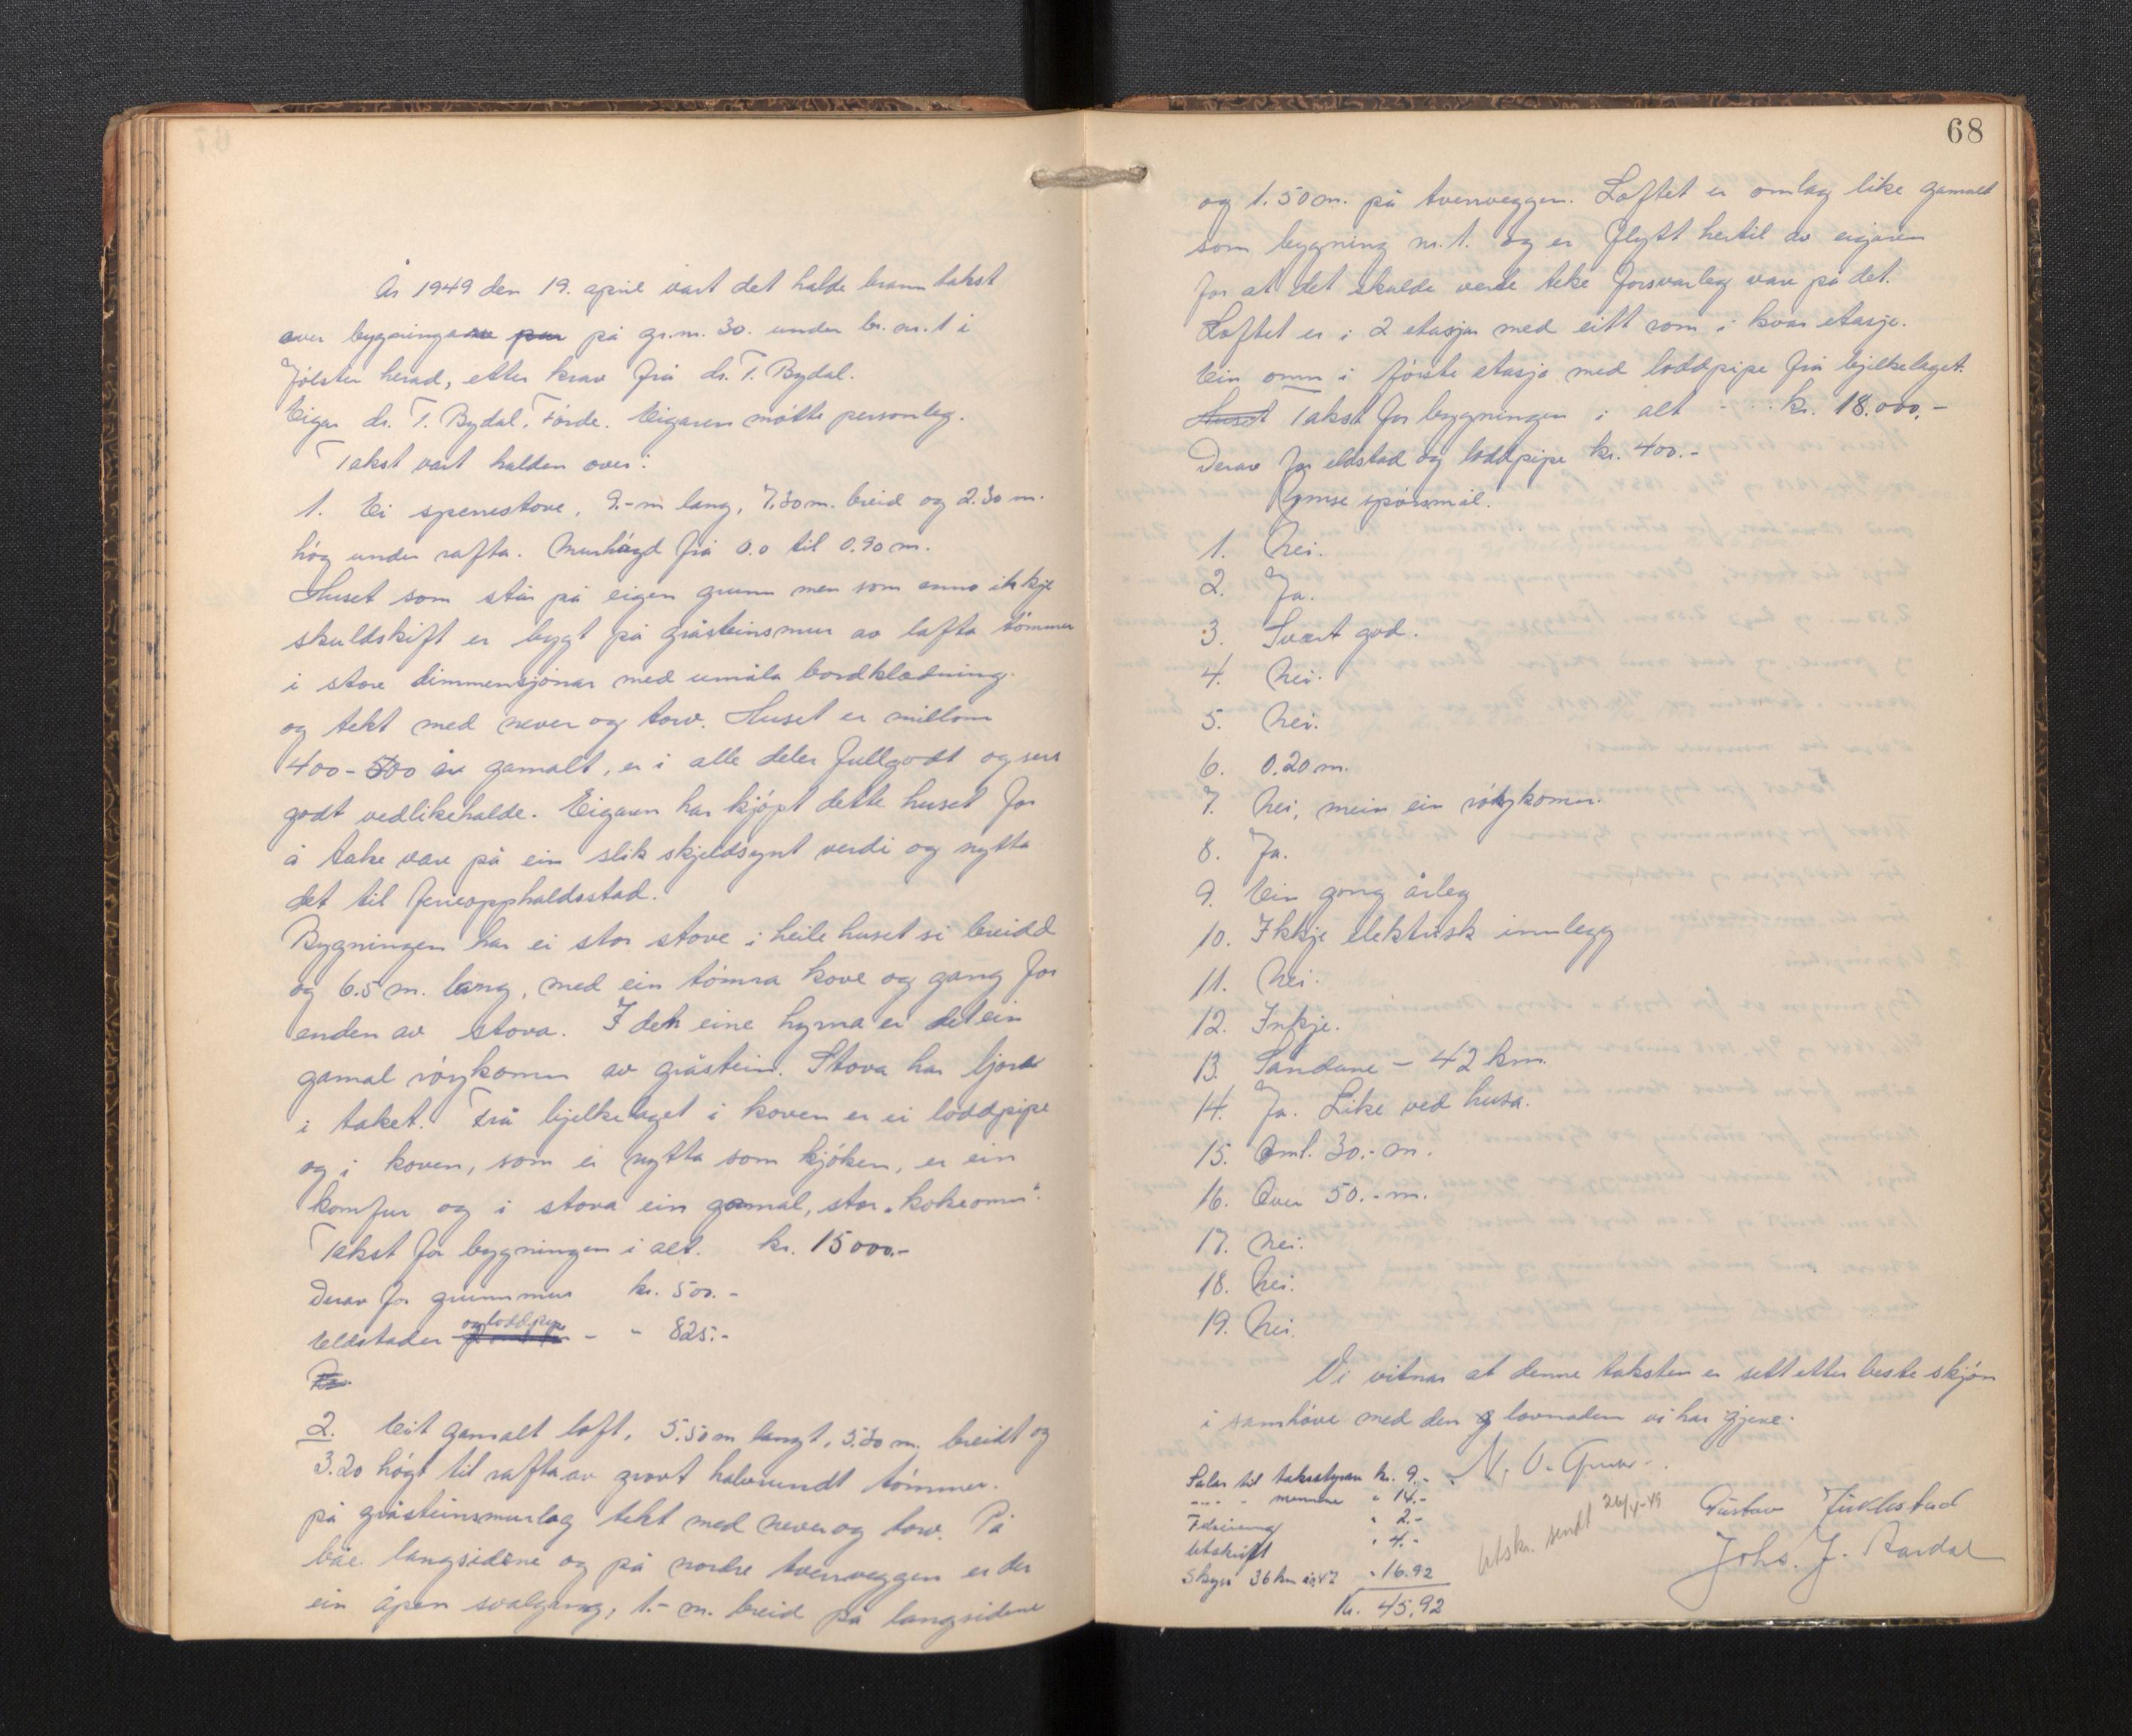 År 1949 den 19. april vart det halde branntakst
over bygningane på gr.nr. 30. under br. nr. 1 i
Jölster herad, etter krav frå dr. T. Bydal.
Eigar dr. T. Bydal, Förde. Eigaren mötte personleg.
Takst vart halden over:
1. Ei sperrestove, 9.- m lang, 7.30 m. breid og 2.30 m.
hög under rafta. Murhögd frå 0.0 til 0.90 m.
Huset som står på eigen grunn men som enno ikkje
skuldskift er bygt på gråsteinsmur av lafta tömmer
i store dimmensjonar med umåla bordklædning
og tekt med never og torv. Huset er millom
400-500 år gamalt, er i alle deler fullgodt og sers
godt vedlikehalde. Eigaren har kjöpt dette huset for
å take vare på ein slik skjeldsynt verdi og nytta
det til ferieopphaldsstad.
Bygningen har ei stor stove i heile huset si breidd
og 6.5 m. lang, med ein tömra kove og gang for
enden av stova. I den eine hyrna er det ein
gamal röykomn av gråstein. Stova har ljore
i taket. Frå bjelkelaget i koven er ei loddpipe
og i koven, som er nytta som kjöken, er ein
komfur og i stova ein gamal, stor "kokeomn".
Takst for bygningen i alt. kr. 15000.-
Derav for grunnmur kr. 500.-
Eldstader og loddpipe - " 825.-
2. Eit gamalt loft, 5.50 m langt, 5.30 m. breidt og
3.20 högt til rafta av grovt halvrundt tömmer.
på gråsteinsmurlag tekt med never og torv. På
båe langsidene og på nordre tverrveggen er der
ein åpen svalgang, 1.- m. breid på langsidene
68
og 1.50 m. på tverrveggen. Loftet er omlag like gamalt
som bygning nr. 1. og er flytt hertil av eigaren
for at det skulde verte teke forsvarleg vare på det.
Loftet er i 2 etasjar med eitt rom i kvar etasje.
Ein omn i förste etasje med loddpipe frå bjelkelaget.
Huset Takst for bygningen i alt - .. kr. 18.000,-
Derav for eldstad og loddpipe kr. 400.-
Ymse spörsmål.
1. Nei.
2. Ja.
3. Svært god.
4. Nei.
5. Nei.
6. 0.20 m.
7. Nei, mein ein röykomn.
8. Ja.
9. Ein gong årleg
10. Ikkje elektrisk innlegg
11. Nei.
12. Inkje.
13. Sandane - 42 km.
14. Ja. Like ved husa.
15. Oml. 30.- m.
16. Over 50.- m.
17. Nei.
18. Nei.
19. Nei.
Vi vitnar at denne taksten er sett etter beste skjön
i samhöve med den lovnaden vi har gjeve.
Salær til takstyraren kr. 9.-
---- - mennene " 14.-
" 2.-
Utskrift " 4.-
Skyss 36 km " 16.92
Kr. 45.92
Utskr. sendt 26/4-49
Gustav
Johs. J. Aardal